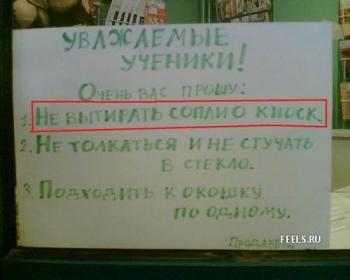 УВАЖАЕМЫЕ
УЧЕНИКИ!
ОЧЕНЬ ВАС ПРОШУ:
1. НЕ ВЫТИРАТЬ СОПЛИ О КИОСК.
2. НЕ ТОЛКАТЬСЯ И НЕ СТУЧАТЬ
В СТЕКЛО.
3. ПОДХОДИТЬ К ОКОШКУ
ПО ОДНОМУ.
FEELS.RU